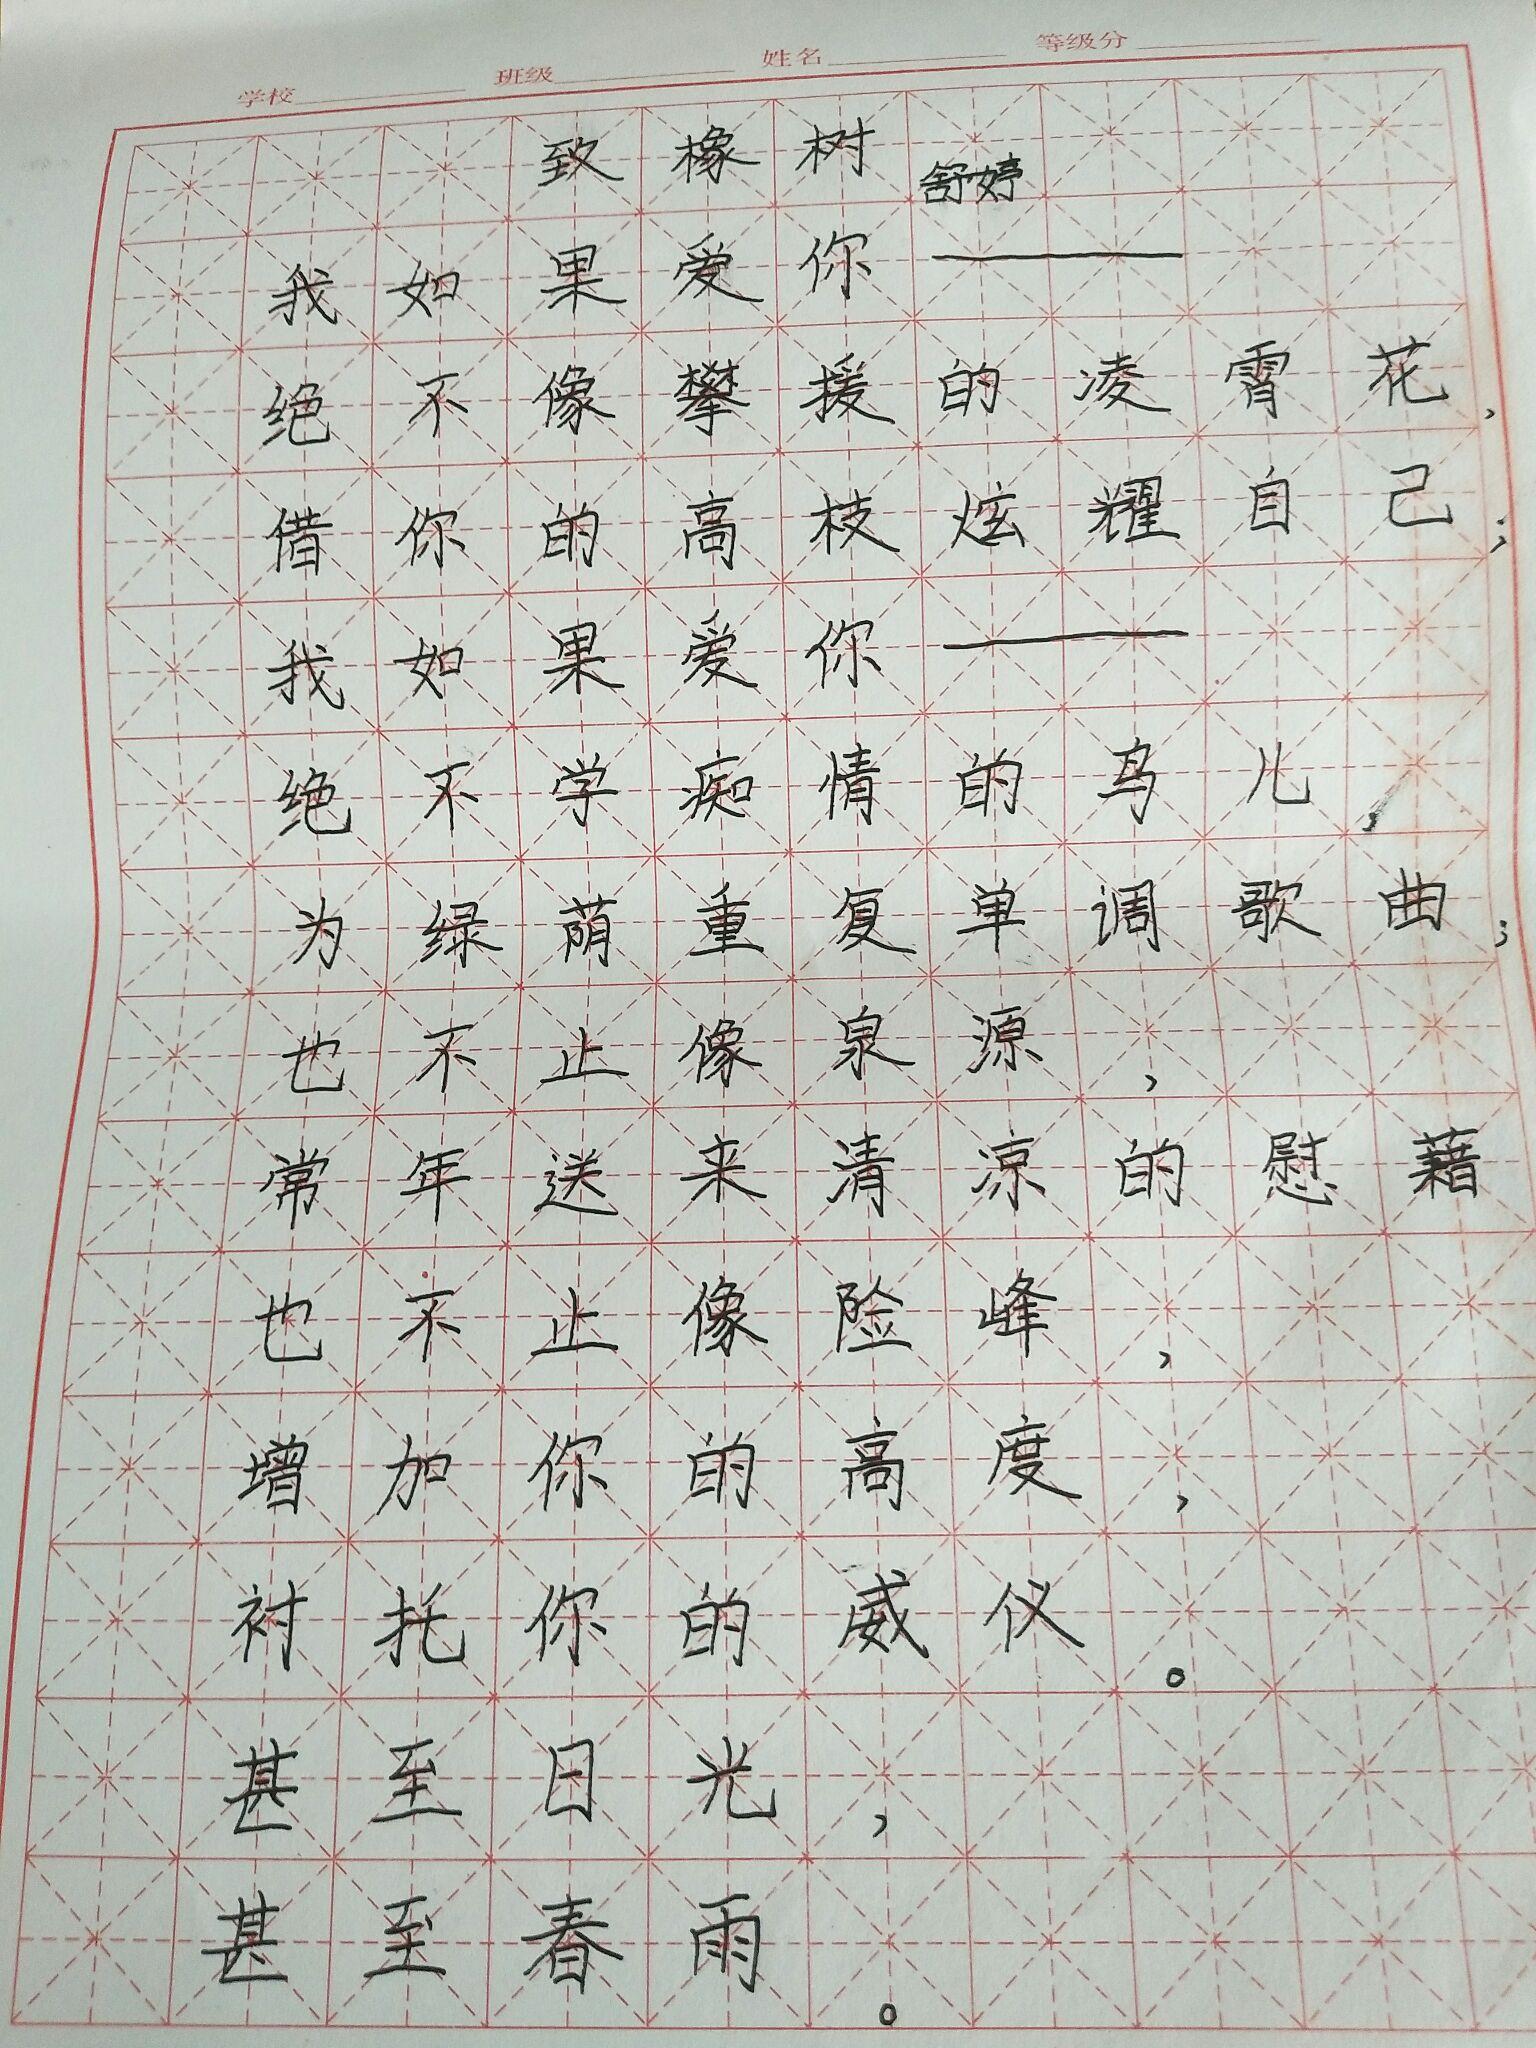 学校 班级 姓名 等级分
致橡树
舒婷
我如果爱你——
绝不像攀援的凌霄花,
借你的高枝炫耀自己;
我如果爱你——
绝不学痴情的鸟儿,
为绿荫重复单调歌曲;
也不止像泉源,
常年送来清凉的慰藉
也不止像险峰,
增加你的高度,
衬托你的威仪。
甚至日光,
甚至春雨。